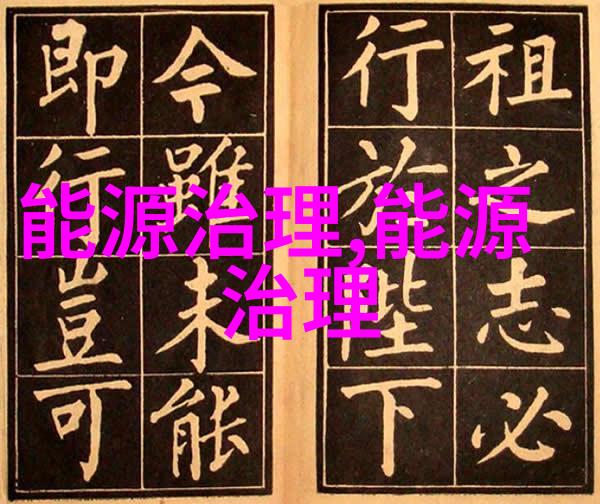 祖之志必
行於陛下
今雖未能
即行豈可
能源治理,能源
治理